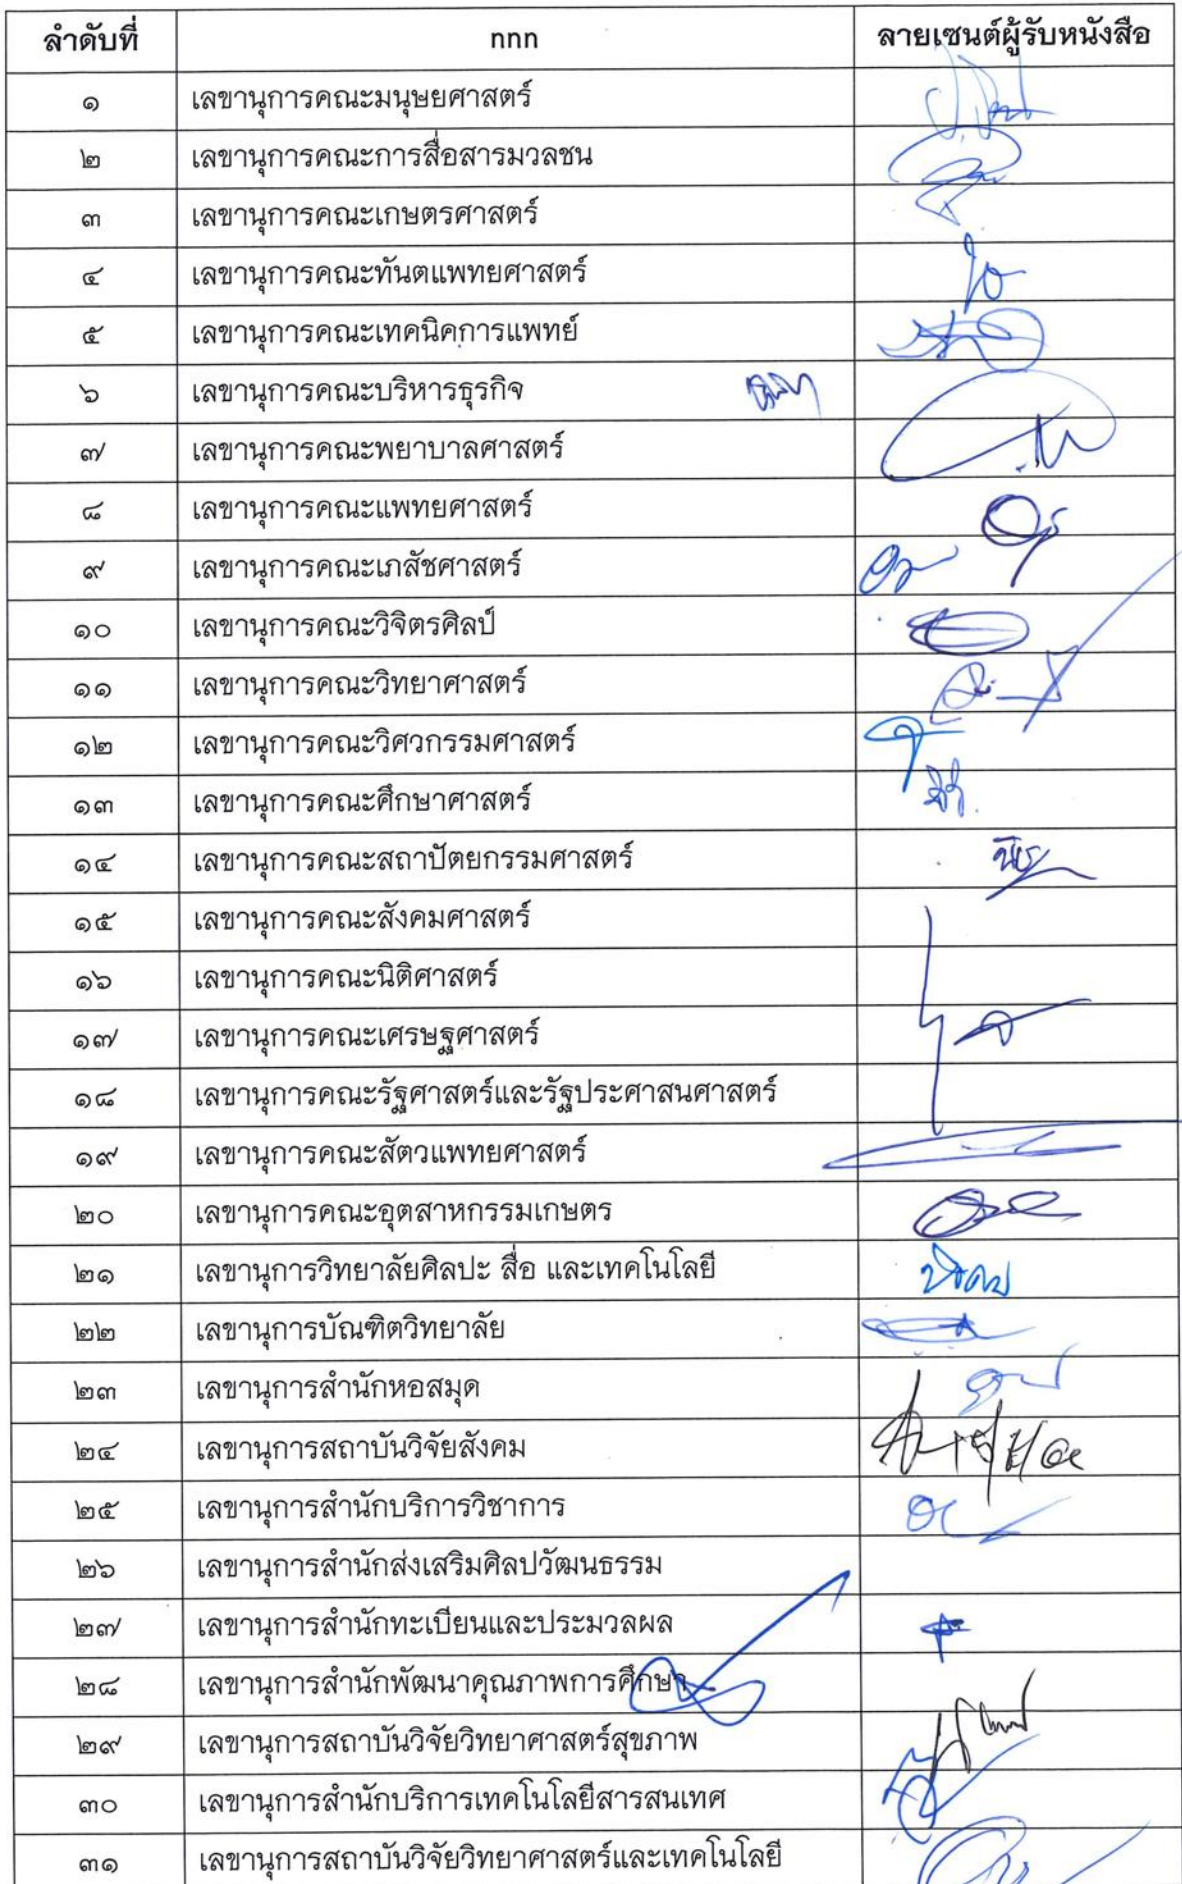 ลำดับที่ nnn ลายเซนต์ผู้รับหนังสือ
๑ เลขานุการคณะมนุษยศาสตร์
๒ เลขานุการคณะการสื่อสารมวลชน
๓ เลขานุการคณะเกษตรศาสตร์
๔ เลขานุการคณะทันตแพทยศาสตร์
๕ เลขานุการคณะเทคนิคการแพทย์
๖ เลขานุการคณะบริหารธุรกิจ
๗ เลขานุการคณะพยาบาลศาสตร์
๘ เลขานุการคณะแพทยศาสตร์
๙ เลขานุการคณะเภสัชศาสตร์
๑๐ เลขานุการคณะวิจิตรศิลป์
๑๑ เลขานุการคณะวิทยาศาสตร์
๑๒ เลขานุการคณะวิศวกรรมศาสตร์
๑๓ เลขานุการคณะศึกษาศาสตร์
๑๔ เลขานุการคณะสถาปัตยกรรมศาสตร์
๑๕ เลขานุการคณะสังคมศาสตร์
๑๖ เลขานุการคณะนิติศาสตร์
๑๗ เลขานุการคณะเศรษฐศาสตร์
๑๘ เลขานุการคณะรัฐศาสตร์และรัฐประศาสนศาสตร์
๑๙ เลขานุการคณะสัตวแพทยศาสตร์
๒๐ เลขานุการคณะอุตสาหกรรมเกษตร
๒๑ เลขานุการวิทยาลัยศิลปะ สื่อ และเทคโนโลยี
๒๒ เลขานุการบัณฑิตวิทยาลัย
๒๓ เลขานุการสำนักหอสมุด
๒๔ เลขานุการสถาบันวิจัยสังคม
๒๕ เลขานุการสำนักบริการวิชาการ
๒๖ เลขานุการสำนักส่งเสริมศิลปวัฒนธรรม
๒๗ เลขานุการสำนักทะเบียนและประมวลผล
๒๘ เลขานุการสำนักพัฒนาคุณภาพการศึกษา
๒๙ เลขานุการสถาบันวิจัยวิทยาศาสตร์สุขภาพ
๓๐ เลขานุการสำนักบริการเทคโนโลยีสารสนเทศ
๓๑ เลขานุการสถาบันวิจัยวิทยาศาสตร์และเทคโนโลยี